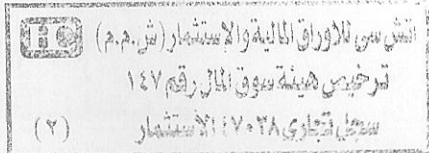 اتش سى للاوراق المالية والاستثمار (ش.م.م) HC
ترخيص هيئة سوق المال رقم ١٤٧
سجل تجارى ١٧٠٢٨ الاستثمار (٢)